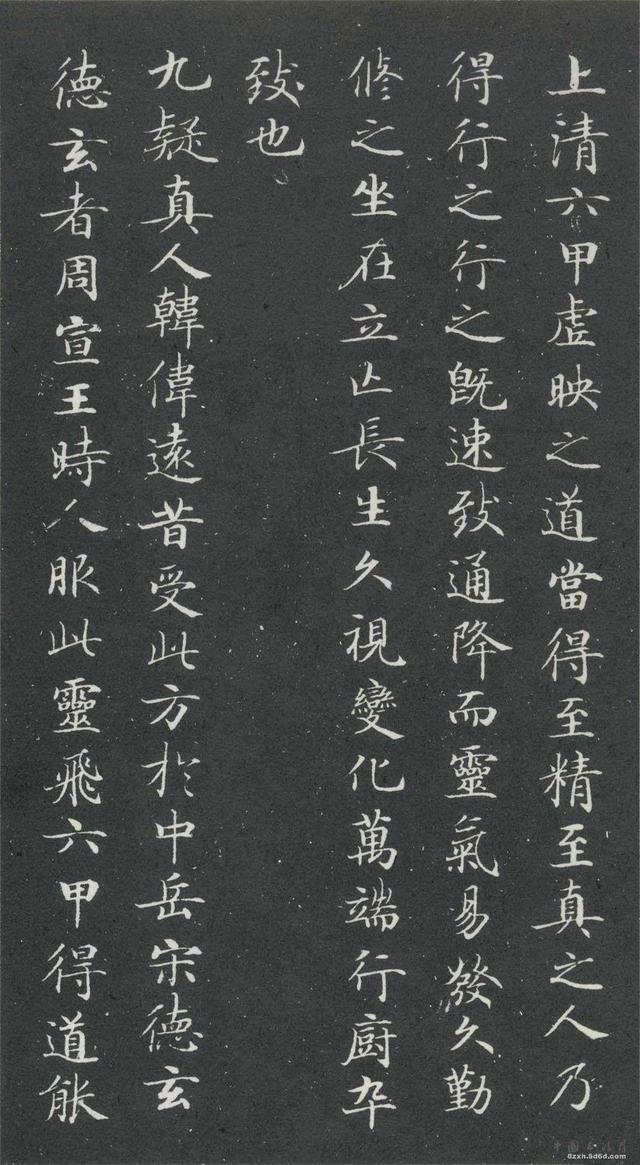 上清六甲虛映之道當得至精至真之人乃
得行之行之既速致通降而靈氣易發久勤
修之坐在立亡長生久視變化萬端行廚卒
致也
九疑真人韓偉遠昔受此方於中岳宋德玄
德玄者周宣王時人服此靈飛六甲得道能
8zxh.5d6d.com